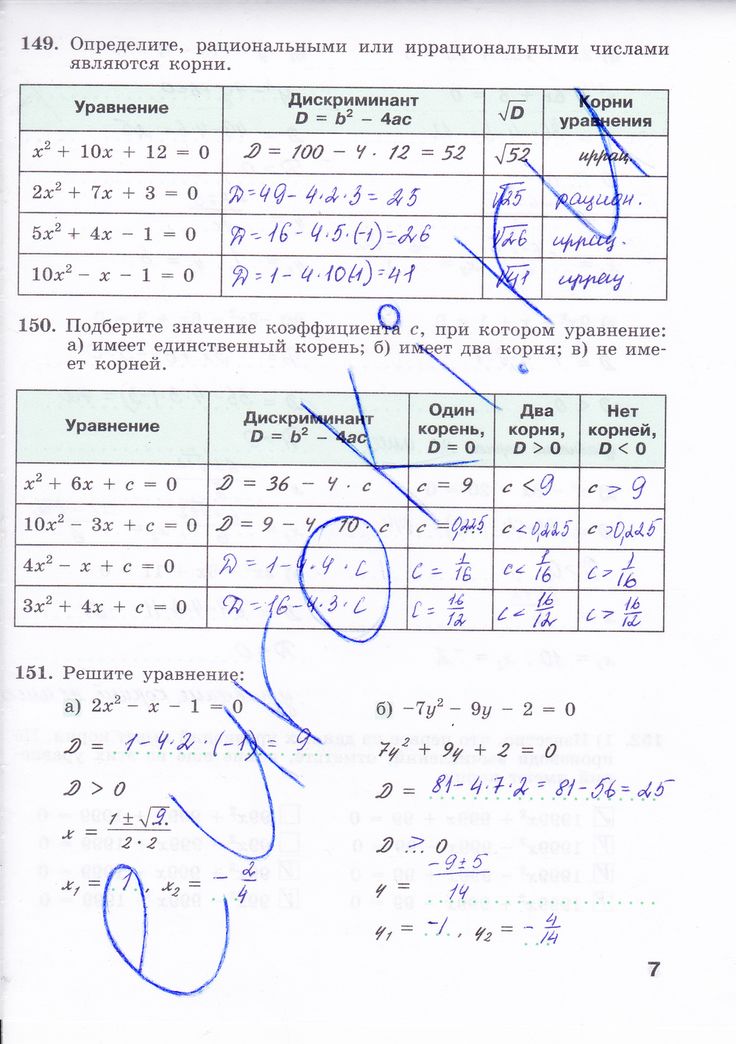 149. Определите, рациональными или иррациональными числами
являются корни.
Уравнение Дискриминант D = b² − 4ac √D Корни уравнения
x² + 10x + 12 = 0 D = 100 − 4 · 12 = 52 √52 иррац.
2x² + 7x + 3 = 0 D = 49 − 4·2·3 = 25 √25 рацион.
5x² + 4x − 1 = 0 D = 16 − 4·5·(−1) = 26 √26 иррац.
10x² − x − 1 = 0 D = 1 − 4·10(1) = 41 √41 иррац
150. Подберите значение коэффициента c, при котором уравнение:
а) имеет единственный корень; б) имеет два корня; в) не име-
ет корней.
Уравнение Дискриминант D = b² − 4ac Один корень, D = 0 Два корня, D > 0 Нет корней, D < 0
x² + 6x + c = 0 D = 36 − 4 · c c = 9 c < 9 c > 9
10x² − 3x + c = 0 D = 9 − 4 · 10 · c c = 0,225 c < 0,225 c > 0,225
4x² − x + c = 0 D = 1 − 4·4·c c = 1/16 c < 1/16 c > 1/16
3x² + 4x + c = 0 D = 16 − 4·3·c c = 16/12 c < 16/12 c > 16/12
151. Решите уравнение:
а) 2x² − x − 1 = 0
D = 1 − 4·2·(−1) = 9
D > 0
x = (1 ± √9)/(2 · 2)
x₁ = 1, x₂ = −2/4
б) −7y² − 9y − 2 = 0
7y² + 9y + 2 = 0
D = 81 − 4·7·2 = 81 − 56 = 25
D > 0
y = (−9 ± 5)/14
y₁ = −1, y₂ = −4/14
7